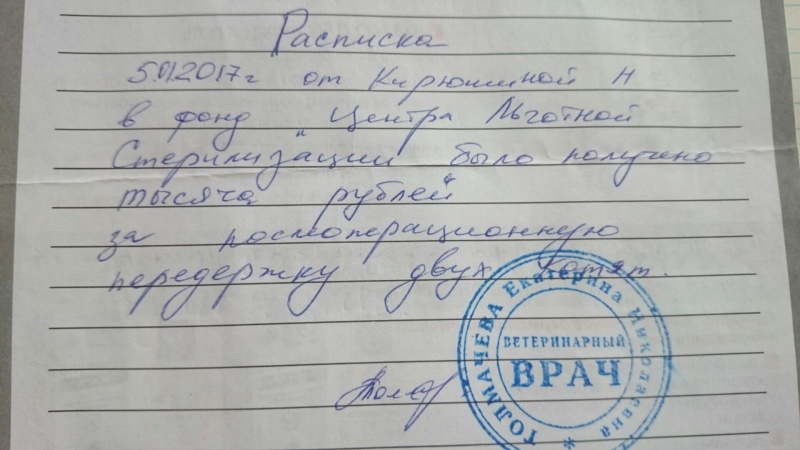 Расписка
5.01.2017г от Кирюшиной Н
в фонд "Центра Льготной
Стерилизации было получено
тысяча рублей"
за послеоперационную
передержку двух котят.
ТОЛМАЧЁВА Екатерина Николаевна
ВЕТЕРИНАРНЫЙ
ВРАЧ